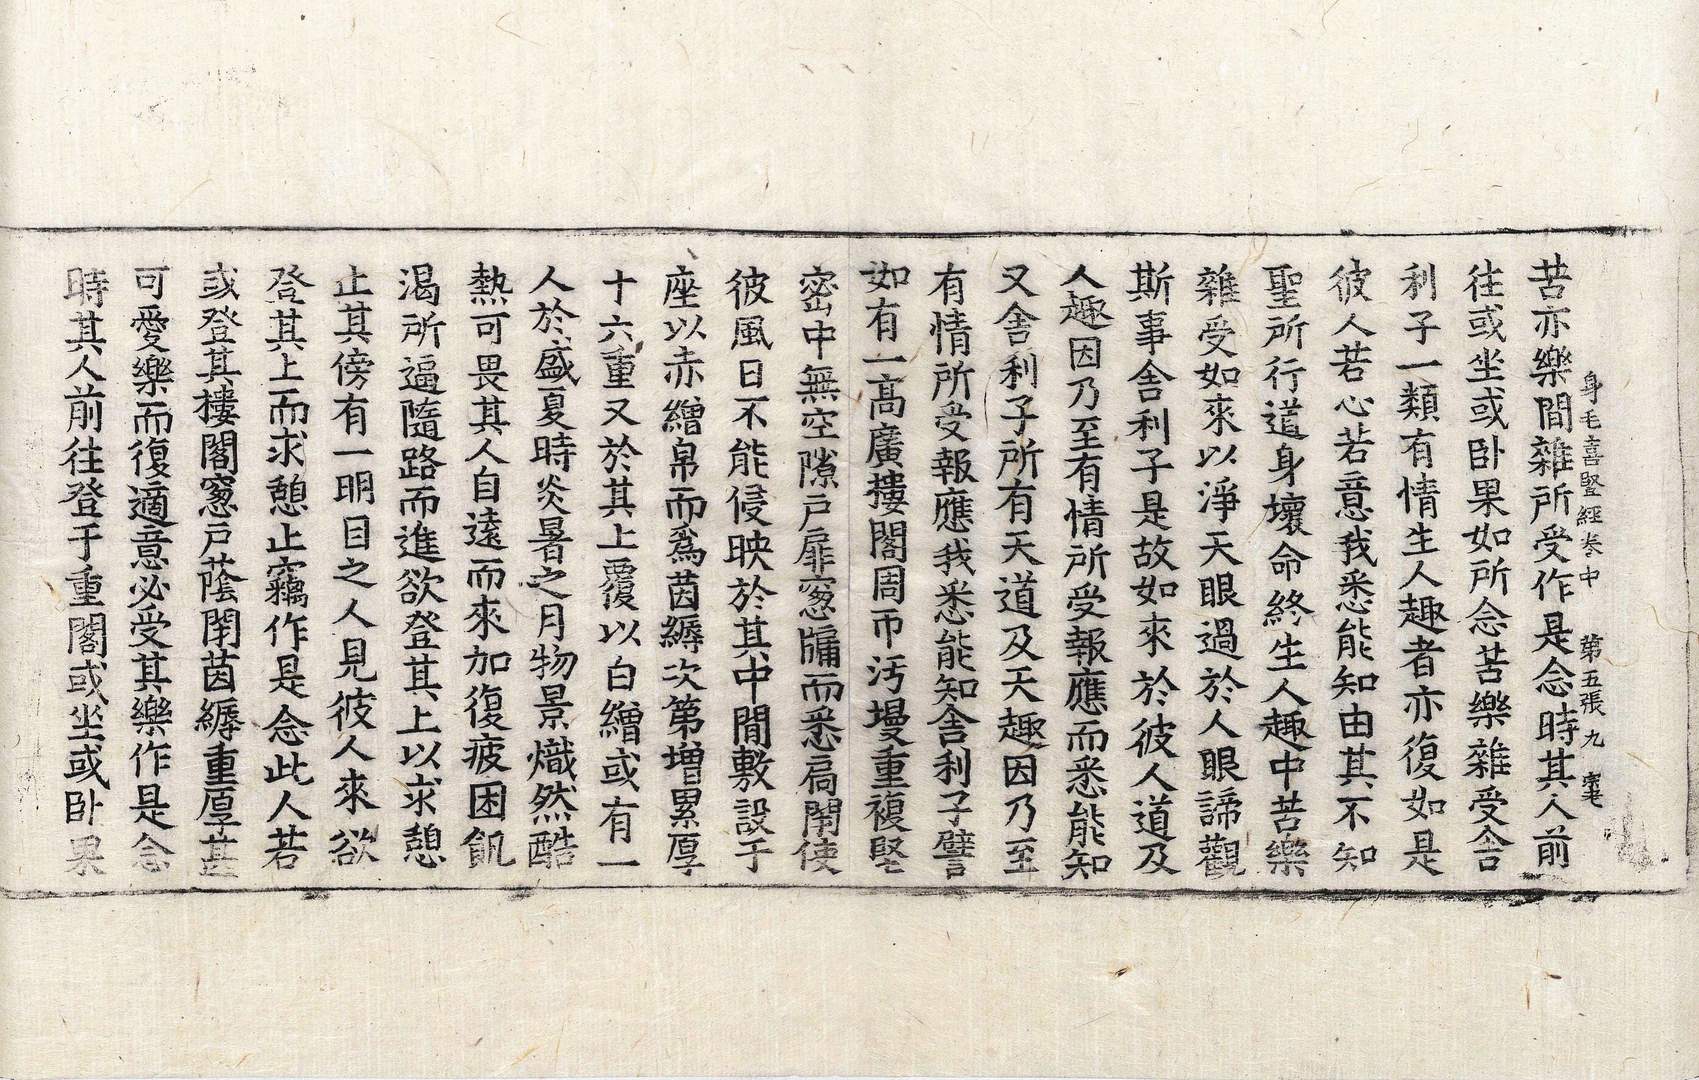 身毛喜竪經卷中　第五張　九
苦亦樂間雜所受作是念時其人前
往或坐或卧果如所念苦樂雜受舍
利子一類有情生人趣者亦復如是
彼人若心若意我悉能知由其不知
聖所行道身壞命終生人趣中苦樂
雜受如來以淨天眼過於人眼諦觀
斯事舍利子是故如來於彼人道及
人趣因乃至有情所受報應而悉能知
又舍利子所有天道及天趣因乃至
有情所受報應我悉能知舍利子譬
如有一高廣樓閣周帀汚墁重複堅
密中無空隙戶扉窓牖而悉扃閉使
彼風日不能侵映於其中間敷設于
座以赤繒帛而爲茵縟次第增累厚
十六重又於其上覆以白繒或有一
人於盛夏時炎暑之月物景熾然酷
熱可畏其人自遠而來加復疲困飢
渴所逼隨路而進欲登其上以求憩
止其傍有一明目之人見彼人來欲
登其上而求憩止竊作是念此人若
或登其樓閣窓戶蔭閉茵縟重厚甚
可愛樂而復適意必受其樂作是念
時其人前往登于重閣或坐或卧果